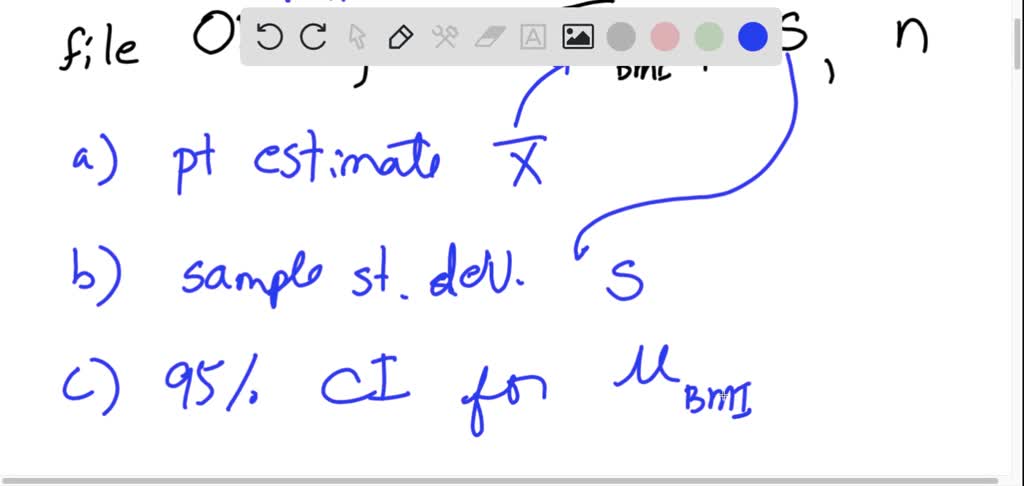 file O , BMI . S , n
a) pt estimate X̅
b) sample st. dev. S
c) 95% CI for μ BMI